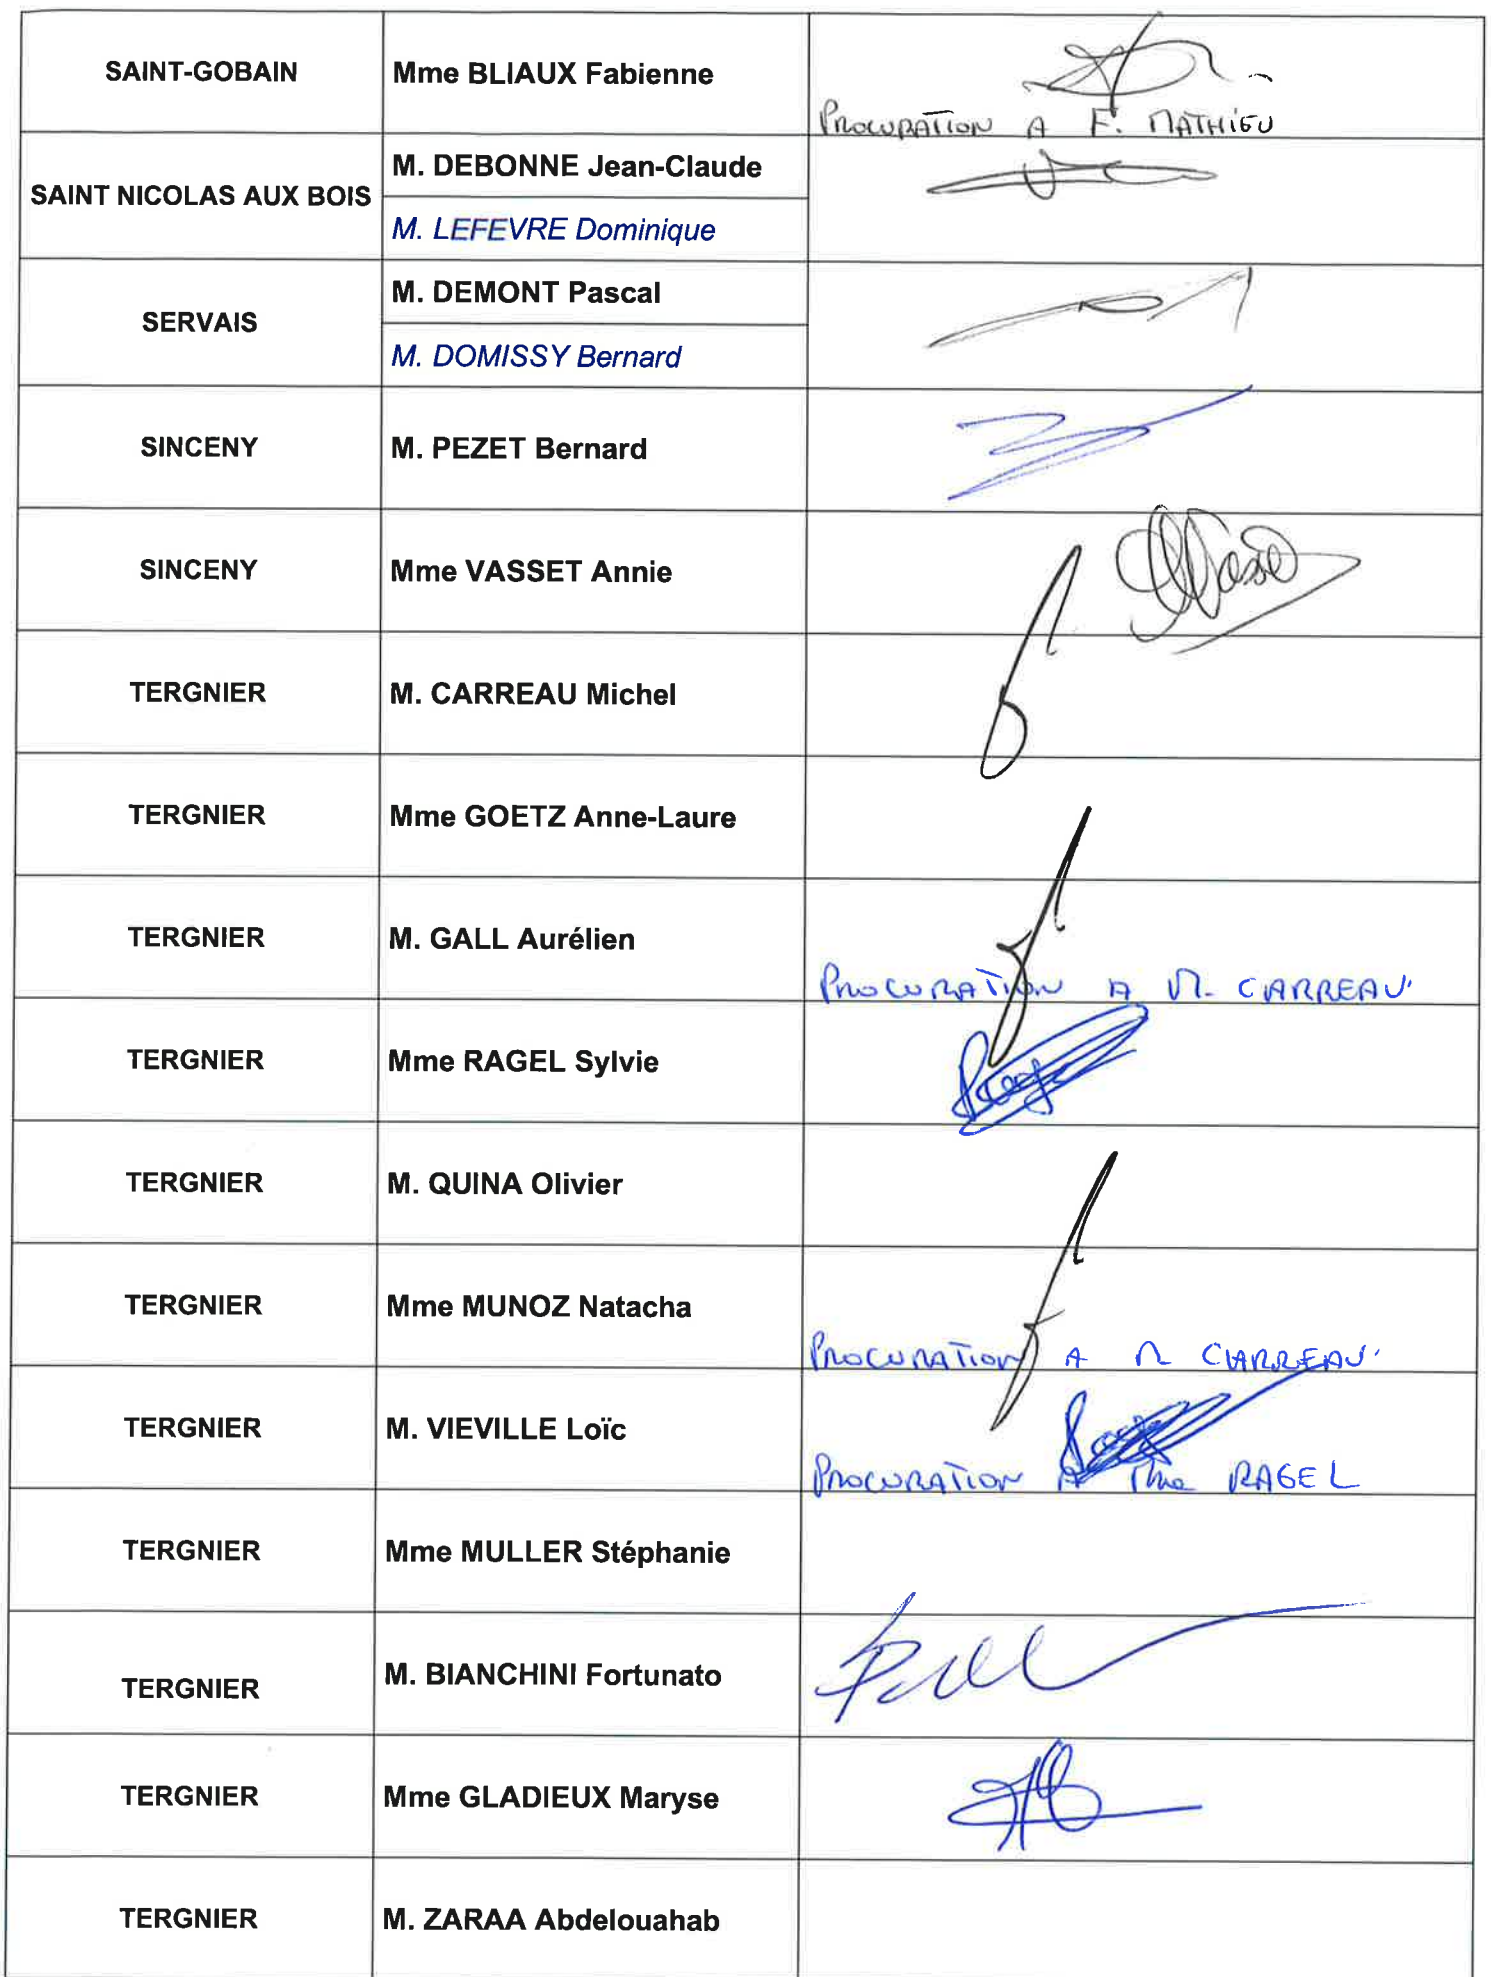 SAINT-GOBAIN
Mme BLIAUX Fabienne
PROCURATION A F. MATHIEU
SAINT NICOLAS AUX BOIS
M. DEBONNE Jean-Claude
M. LEFEVRE Dominique
SERVAIS
M. DEMONT Pascal
M. DOMISSY Bernard
SINCENY
M. PEZET Bernard
SINCENY
Mme VASSET Annie
TERGNIER
M. CARREAU Michel
TERGNIER
Mme GOETZ Anne-Laure
TERGNIER
M. GALL Aurélien
PROCURATION A M. CARREAU
TERGNIER
Mme RAGEL Sylvie
TERGNIER
M. QUINA Olivier
TERGNIER
Mme MUNOZ Natacha
PROCURATION A M CARREAU
TERGNIER
M. VIEVILLE Loïc
PROCURATION A Mme RAGEL
TERGNIER
Mme MULLER Stéphanie
TERGNIER
M. BIANCHINI Fortunato
TERGNIER
Mme GLADIEUX Maryse
TERGNIER
M. ZARAA Abdelouahab